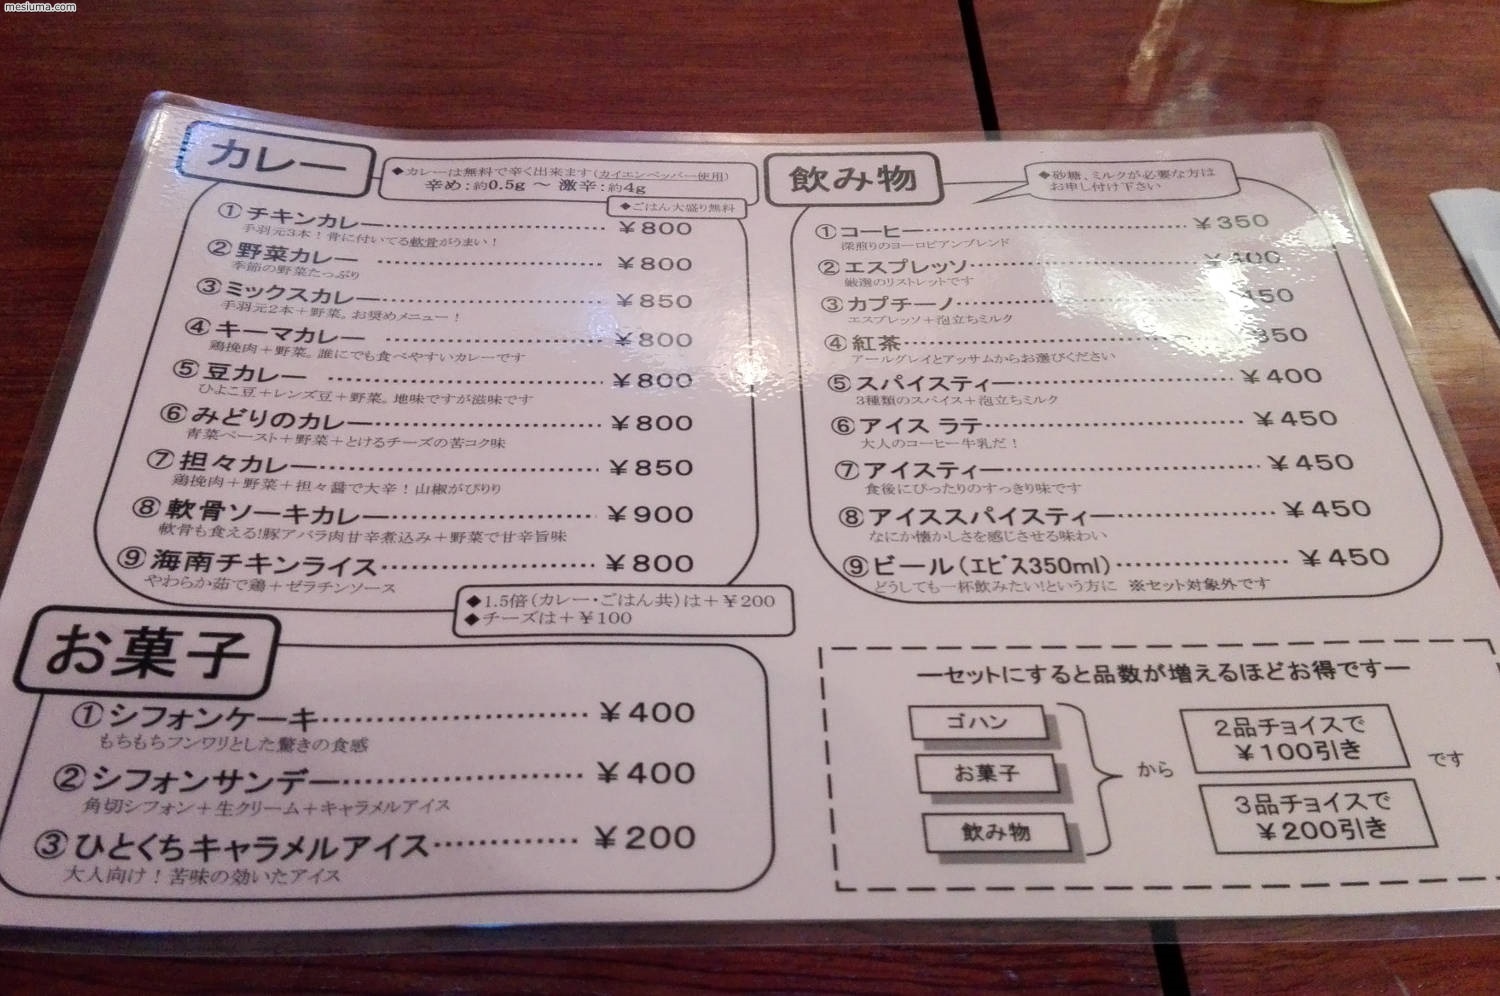 mesiuma.com
カレー
◆カレーは無料で辛く出来ます(カイエンペッパー使用)
辛め:約0.5g ～ 激辛:約4g
◆ごはん大盛り無料
①チキンカレー ¥800
手羽元3本！骨に付いてる軟骨がうまい！
②野菜カレー ¥800
季節の野菜たっぷり
③ミックスカレー ¥850
手羽元2本＋野菜。お奨めメニュー！
④キーマカレー ¥800
鶏挽肉＋野菜。誰にでも食べやすいカレーです
⑤豆カレー ¥800
ひよこ豆＋レンズ豆＋野菜。地味ですが滋味です
⑥みどりのカレー ¥800
青菜ペースト＋野菜＋とけるチーズの苦コク味
⑦担々カレー ¥850
鶏挽肉＋野菜＋担々醤で大辛！山椒がぴりり
⑧軟骨ソーキカレー ¥900
軟骨も食える!豚アバラ肉甘辛煮込み＋野菜で甘辛旨味
⑨海南チキンライス ¥800
やわらか茹で鶏＋ゼラチンソース
◆1.5倍(カレー・ごはん共)は＋¥200
◆チーズは＋¥100
お菓子
①シフォンケーキ ¥400
もちもちフンワリとした驚きの食感
②シフォンサンデー ¥400
角切シフォン＋生クリーム＋キャラメルアイス
③ひとくちキャラメルアイス ¥200
大人向け！苦味の効いたアイス
飲み物
◆砂糖、ミルクが必要な方は
お申し付け下さい
①コーヒー ¥350
深煎りのヨーロピアンブレンド
②エスプレッソ ¥400
厳選のリストレットです
③カプチーノ 450
エスプレッソ＋泡立ちミルク
④紅茶 350
アールグレイとアッサムからお選びください
⑤スパイスティー ¥400
3種類のスパイス＋泡立ちミルク
⑥アイス ラテ ¥450
大人のコーヒー牛乳だ！
⑦アイスティー ¥450
食後にぴったりのすっきり味です
⑧アイススパイスティー ¥450
なにか懐かしさを感じさせる味わい
⑨ビール(エビス350ml) ¥450
どうしても一杯飲みたい!という方に ※セット対象外です
―セットにすると品数が増えるほどお得です―
ゴハン
お菓子
飲み物
から
2品チョイスで
¥100引き
3品チョイスで
¥200引き
です